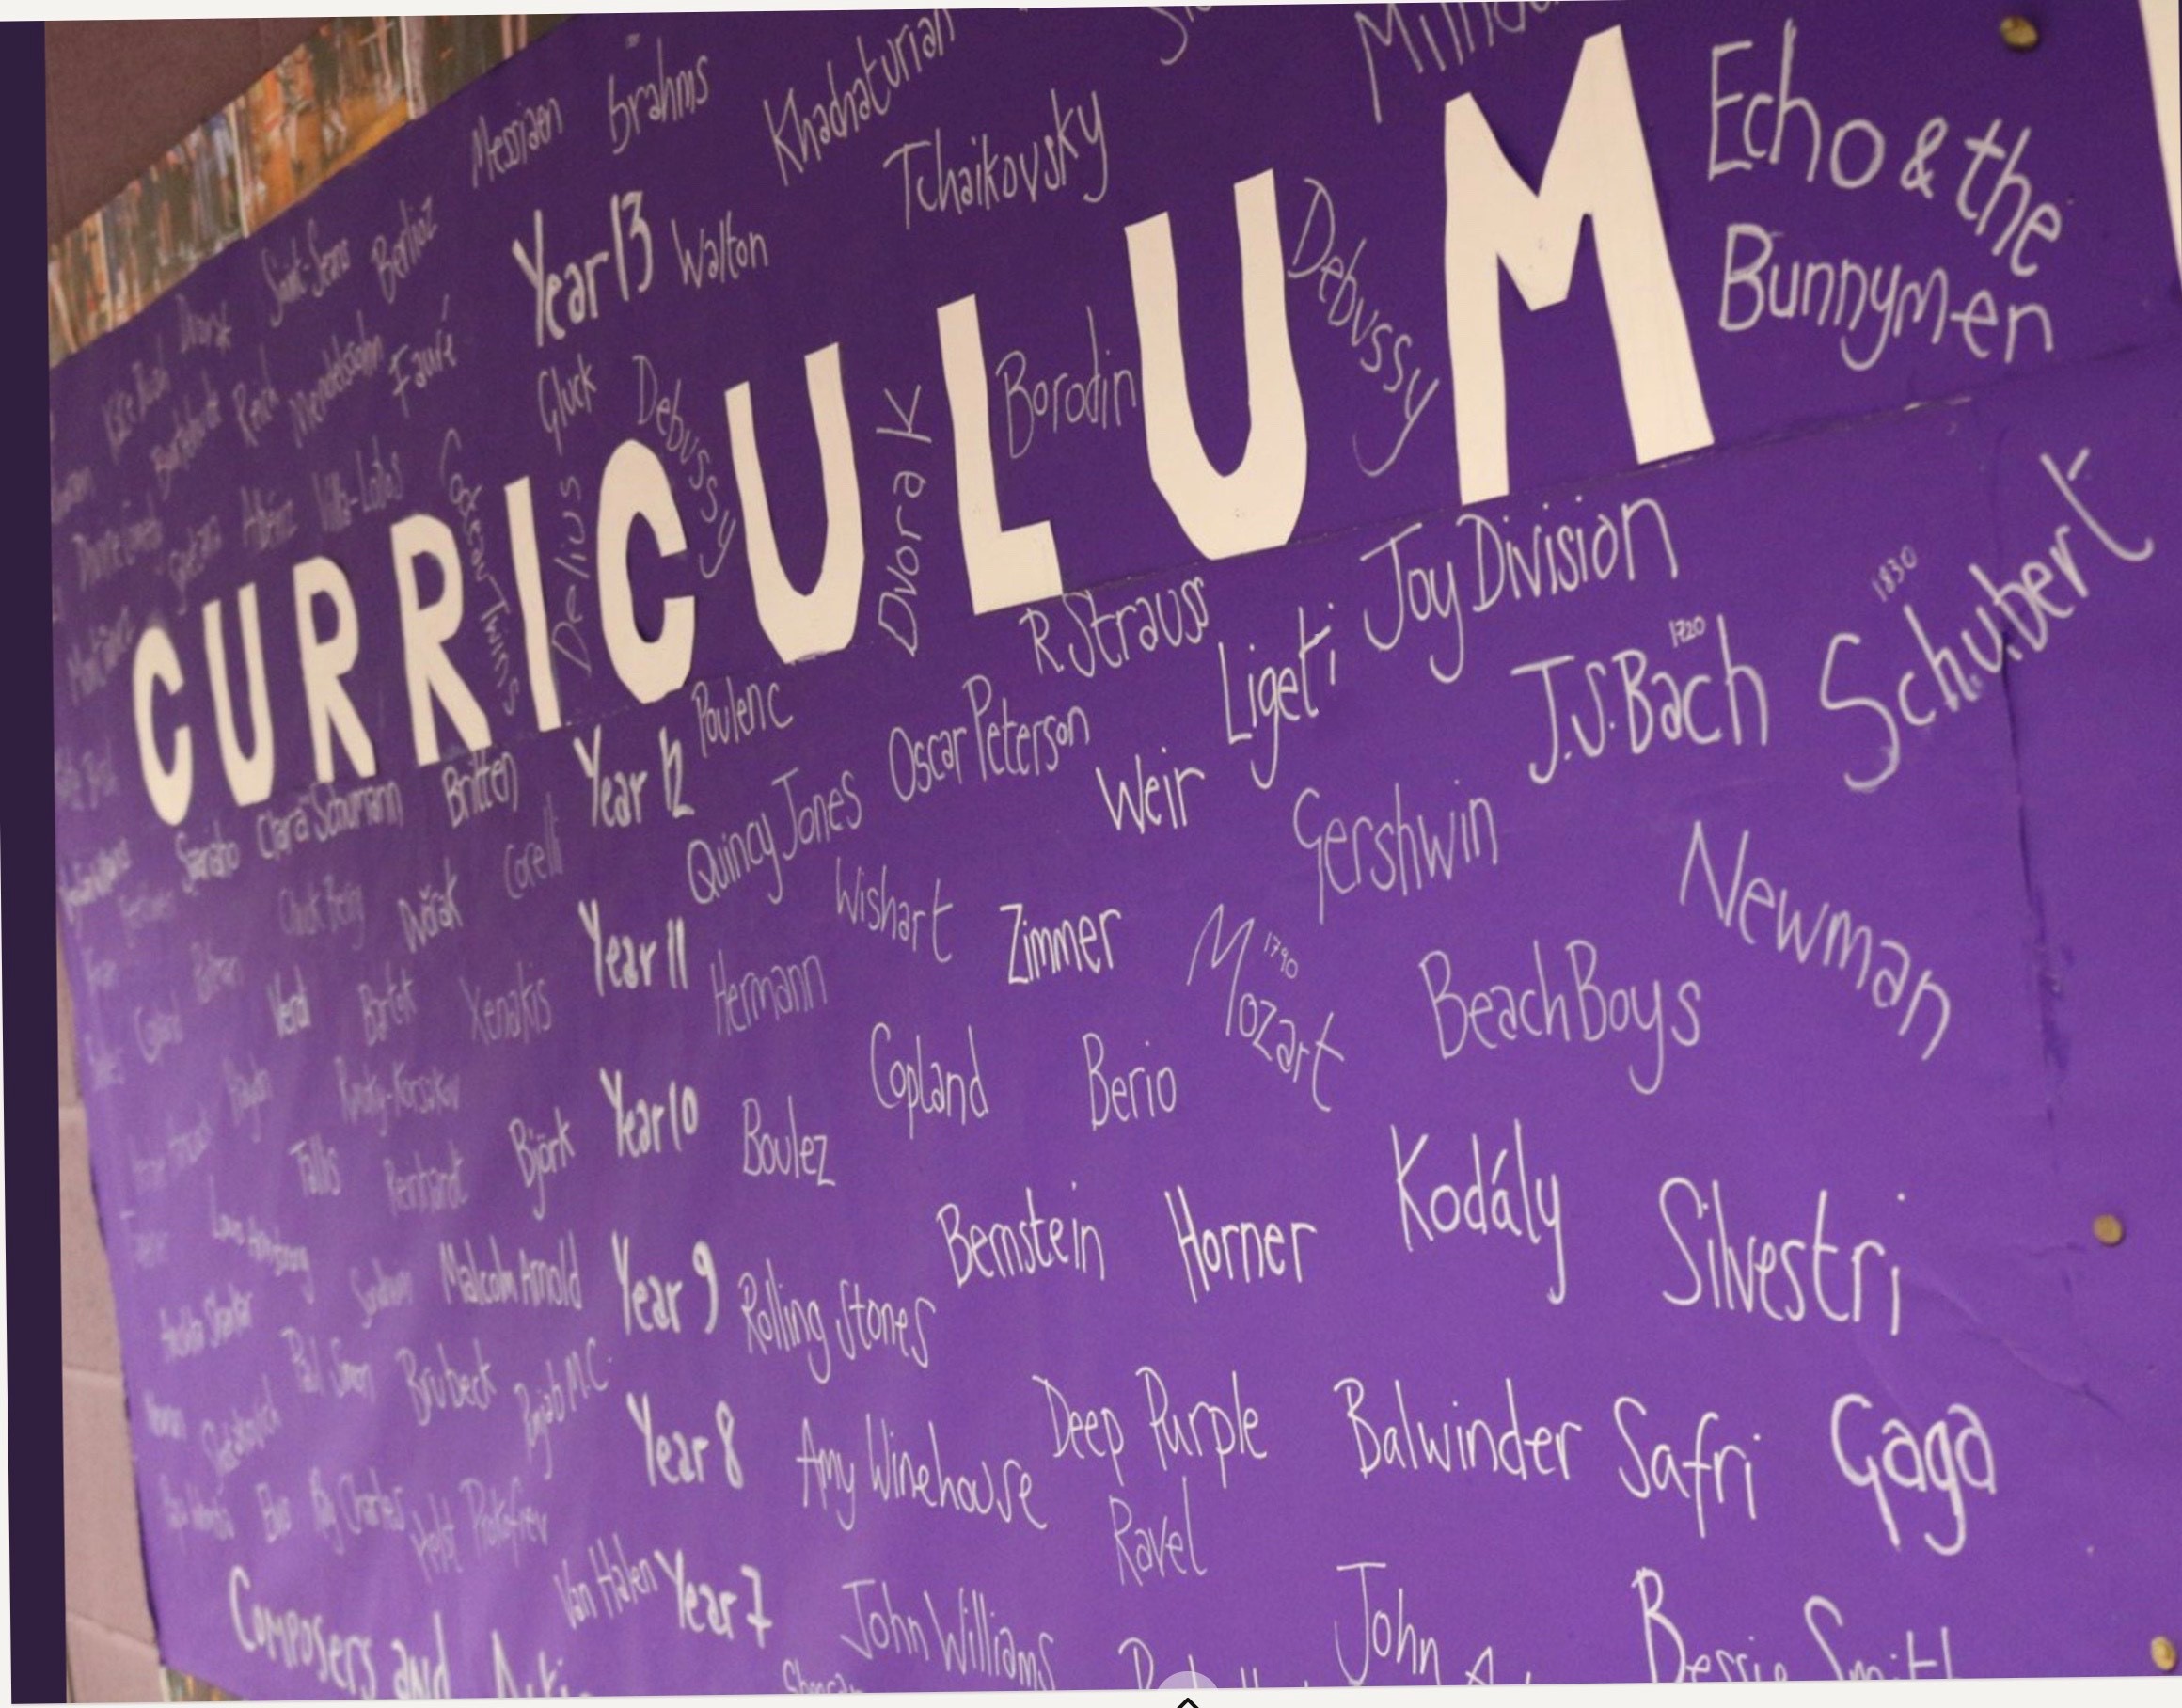 Messiaen Brahms Khachaturian
Tchaikovsky
Echo & the
Bunnymen
Saint-Saens Berlioz
Year 13 Walton
Mendelssohn Fauré
Reich
Gluck Debussy
Dvorak
Borodin
Debussy
Villa-Lobos
Cocteau Twins
Delius
CURRICULUM
R. Strauss
Joy Division
Ligeti
1720
J.S. Bach
1830
Schubert
Clara Schumann Britten
Year 12 Poulenc
Oscar Peterson
Weir
Gershwin
Newman
Saariaho
Chuck Berry
Dvořák
Corelli
Quincy Jones
Wishart
Zimmer
1790
Mozart
Beach Boys
Year 11 Hermann
Verdi
Bartók
Xenakis
Copland
Copland
Berio
Haydn
Rimsky-Korsakov
Year 10 Boulez
Björk
Tallis
Reinhardt
Bernstein Horner
Kodály
Silvestri
Louis Armstrong
Malcolm Arnold Year 9 Rolling Stones
Paul Simon Brubeck
Punjabi M.C.
Year 8 Amy Winehouse
Deep Purple Balwinder Safri Gaga
Ravel
Shostakovich
Ray Charles
Holst Prokofiev
Van Halen Year 7 John Williams
John
Bessie Smith
Composers and